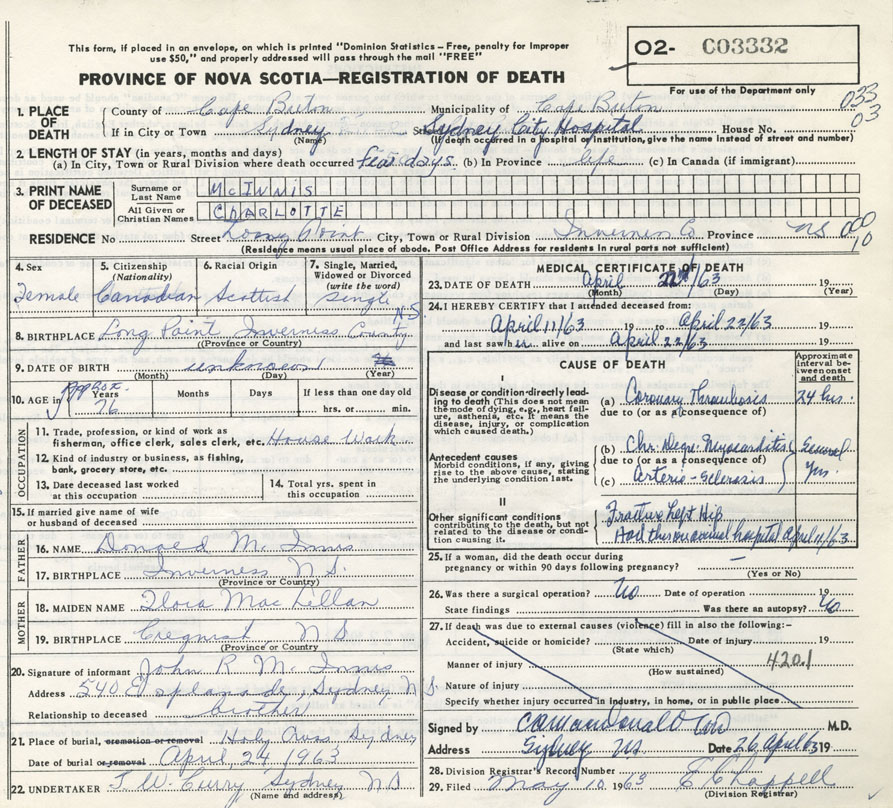 This form, if placed in an envelope, on which is printed "Dominion Statistics - Free, penalty for improper
use $50," and properly addressed will pass through the mail "FREE"
PROVINCE OF NOVA SCOTIA—REGISTRATION OF DEATH
O2- C03332
For use of the Department only
033
03
1. PLACE OF DEATH
County of Cape Breton Municipality of Cape Breton
If in City or Town Sydney Sydney City Hospital House No.
(Name) (If death occurred in a hospital or institution, give the name instead of street and number)
2. LENGTH OF STAY (in years, months and days)
(a) In City, Town or Rural Division where death occurred few days. (b) In Province life (c) In Canada (if immigrant)
3. PRINT NAME OF DECEASED
Surname or Last Name McINNIS
All Given or Christian Names CHARLOTTE
RESIDENCE No Street Long Point City, Town or Rural Division Inverness Co Province NS 000
10
(Residence means usual place of abode. Post Office Address for residents in rural parts not sufficient)
4. Sex
Female
5. Citizenship (Nationality)
Canadian
6. Racial Origin
Scottish
7. Single, Married, Widowed or Divorced (write the word)
single
8. BIRTHPLACE Long Point Inverness County N-S
(Province or Country)
9. DATE OF BIRTH unknown
(Month) (Day) (Year)
10. AGE in Approx. Years 76 Months Days If less than one day old
hrs. or min.
OCCUPATION
11. Trade, profession, or kind of work as
fisherman, office clerk, sales clerk, etc. House Work
12. Kind of industry or business, as fishing,
bank, grocery store, etc.
13. Date deceased last worked
at this occupation
14. Total yrs. spent in
this occupation
15. If married give name of wife
or husband of deceased
FATHER
16. NAME Donald McInnis
17. BIRTHPLACE Inverness N.S.
(Province or Country)
MOTHER
18. MAIDEN NAME Flora MacLellan
19. BIRTHPLACE N S
(Province or Country)
20.
Signature of informant John R McInnis
Address 540 Esplanade, Sydney N S.
Relationship to deceased brother
21. Place of burial, cremation or removal Holy Cross Sydney
Date of burial or removal April, 24 1963
22. UNDERTAKER J W Curry Sydney NS
(Name and address)
MEDICAL CERTIFICATE OF DEATH
23. DATE OF DEATH April 22/63
(Month) (Day) (Year)
24. I HEREBY CERTIFY that I attended deceased from:
April 11/63 19 to April 22/63 19
and last saw her alive on April 22/63 19
CAUSE OF DEATH
Approximate interval between onset and death
I
Disease or condition directly leading to death (This does not mean the mode of dying, e.g., heart failure, asthenia, etc. It means the disease, injury, or complication which caused death.)
(a) Coronary Thrombosis 24 hrs.
due to (or as a consequence of)
Antecedent causes
Morbid conditions, if any, giving rise to the above cause, stating the underlying condition last.
(b) Chr. Degn. Myocarditis Several
due to (or as a consequence of)
(c) Arterio-Sclerosis Yrs.
II
Other significant conditions
contributing to the death, but not related to the disease or condition causing it.
Fracture Left Hip
Had this on arrival hospital April 11/63
25. If a woman, did the death occur during
pregnancy or within 90 days following pregnancy? —
(Yes or No)
26. Was there a surgical operation? No Date of operation 19
State findings Was there an autopsy? No
27. If death was due to external causes (violence) fill in also the following:-
Accident, suicide or homicide? Date of injury 19
(State which)
Manner of injury 420.1
(How sustained)
Nature of injury
Specify whether injury occurred in Industry, in home, or in public place
Signed by M.D.
Address Sydney NS Date 26 April 63 19
28. Division Registrar's Record Number
29. Filed May 10 1963 E Chappell
(Division Registrar)